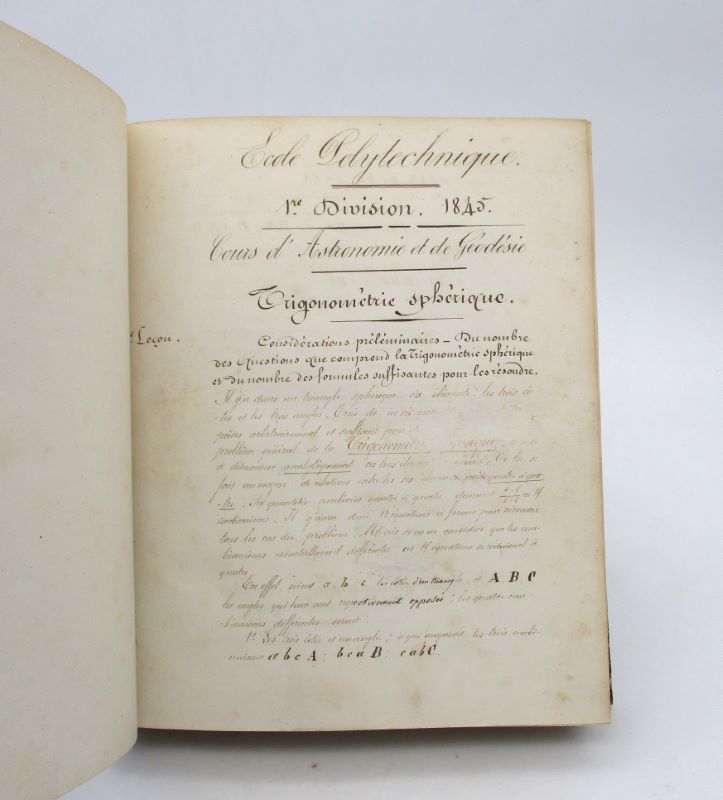 Ecole Polytechnique.
1re Division. 1845.
Cours d'Astronomie et de Géodésie
Trigonométrie sphérique.
Leçon.
Considérations préléminaires – Du nombre
des Questions que comprend la Trigonométrie sphérique
et du nombre des formules suffisantes pour les résoudre.
Il y a dans un triangle sphérique six éléments: les trois cô-
-tés et les trois angles. Trois de
arbitrairement et suffisent pour
problème général de la Trigonométrie
à déterminer analytiquement trois De là
au moyen de relations entre les six quatre à qua-
-tre. Six quantités combinées quatre à quatre donnent
combinaisons. Il y aura donc 15 équations à former pour résoudre
tous les cas du problème. Mais si on considère que les com-
binaisons essentiellement différentes ces équations se réduisent à
quatre.
En effet, soient a, b, c les côtés d'un triangle, et A B C
les angles qui leur sont respectivement opposés; les quatre com-
binaisons différentes seront:
1º Les trois côtés et un angle; ce qui comprend les trois combi-
naisons a b c A; b c a B; c a b C.